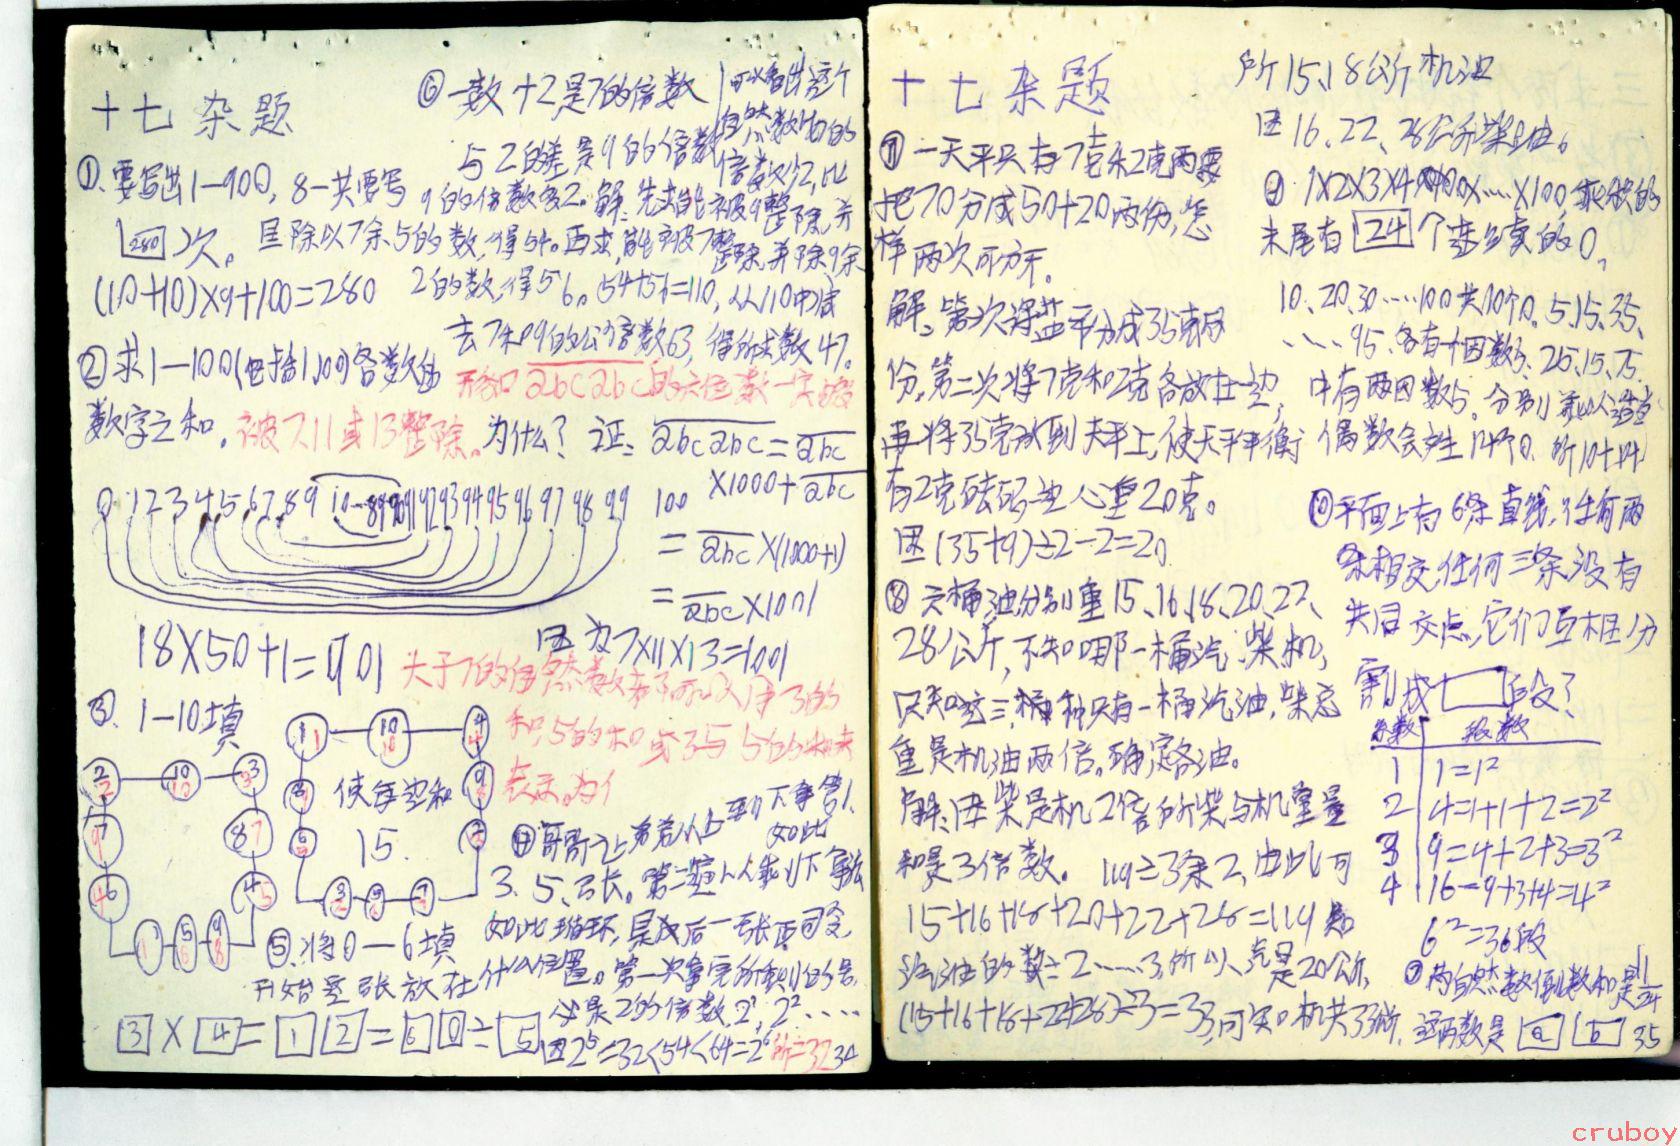 十七 杂 题
①.要写出1—900, 8一共要写
280 次。
(10+10)×9+100=280
②求1—100(包括1,100)各数的
数字之和。
0 1 2 3 4 5 6 7 8 9 10…89 90 91 92 93 94 95 96 97 98 99 100
18×50+1=901
③. 1—10填
使每边和
15.
⑤.将0—6填
3 × 4 = 1 2 = 6 0 ÷ 5
⑥一数+2是7的倍数
与2的差是9的倍数
可以看出这个
自然数比7的
倍数少2,比
9的倍数多2。解:先求能被9整除,并
且除以7余5的数,得54。再求,能被7整除,并除9余
2的数,得56。54+56=110,从110中减
去7和9的公倍数63,得所求数47。
形如abcabc的六位数一定能
被7,11或13整除。为什么? 证: abcabc=abc
×1000+abc
=abc×(1000+1)
=abc×1001
因为7×11×13=1001
大于7的自然数都可以用3的
和,5的和或3与5的和来
表示。为什
④哥哥让弟弟从上到下拿第1.
3.5.…张。第二遍从上到下拿法
如此
如此循环,最后一张是司令
开始是张放在什么位置。第一次拿完所剩的号
必是2的倍数,2¹,2²……
因2⁵=32<54<64=2⁶ 所=32
34
十七 杂 题
⑦一天平只有7克和2克两砝
把70分成50+20两份,怎
样两次可分开。
解:第一次将盐平分成35克两
份,第二次将7克和2克各放在一边,
再将35克放到天平上,使天平平衡
有2克砝码一边心重20克。
因(35+9)÷2-2=20
⑧六桶油分别重15、16、18、20、22、
28公斤,不知哪一桶汽、柴、机,
只知这三种只有一桶汽油,柴总
重是机油两倍。确定各油。
解:因柴是机2倍所以柴与机重量
和是3倍数。119÷3余2,由此可
15+16+18+20+22+28=119知
汽油的数÷2……3,所以汽是20公斤,
(15+16+18+22+28)÷3=33,可知机共33公斤,
所15、18公斤机油
因16、22、28公斤柴油。
⑨1×2×3×4×……×100,乘积的
末尾有 24 个连续的0。
10、20、30……100共10个0。5、15、35、
……95、各有一个因数5、25、75
中有两因数5。分别乘以适当
偶数会产生14个0 所10+14
⑩平面上有6条直线,任何两
条相交,任何三条没有
共同交点,它们互相分
割成□段?
条数 段数
1 1=1²
2 4=1+1+2=2²
3 9=4+2+3=3²
4 16=9+3+4=4²
6²=36段
⑦两自然数倒数和是11/24
这两数是 a b 35
cruboy